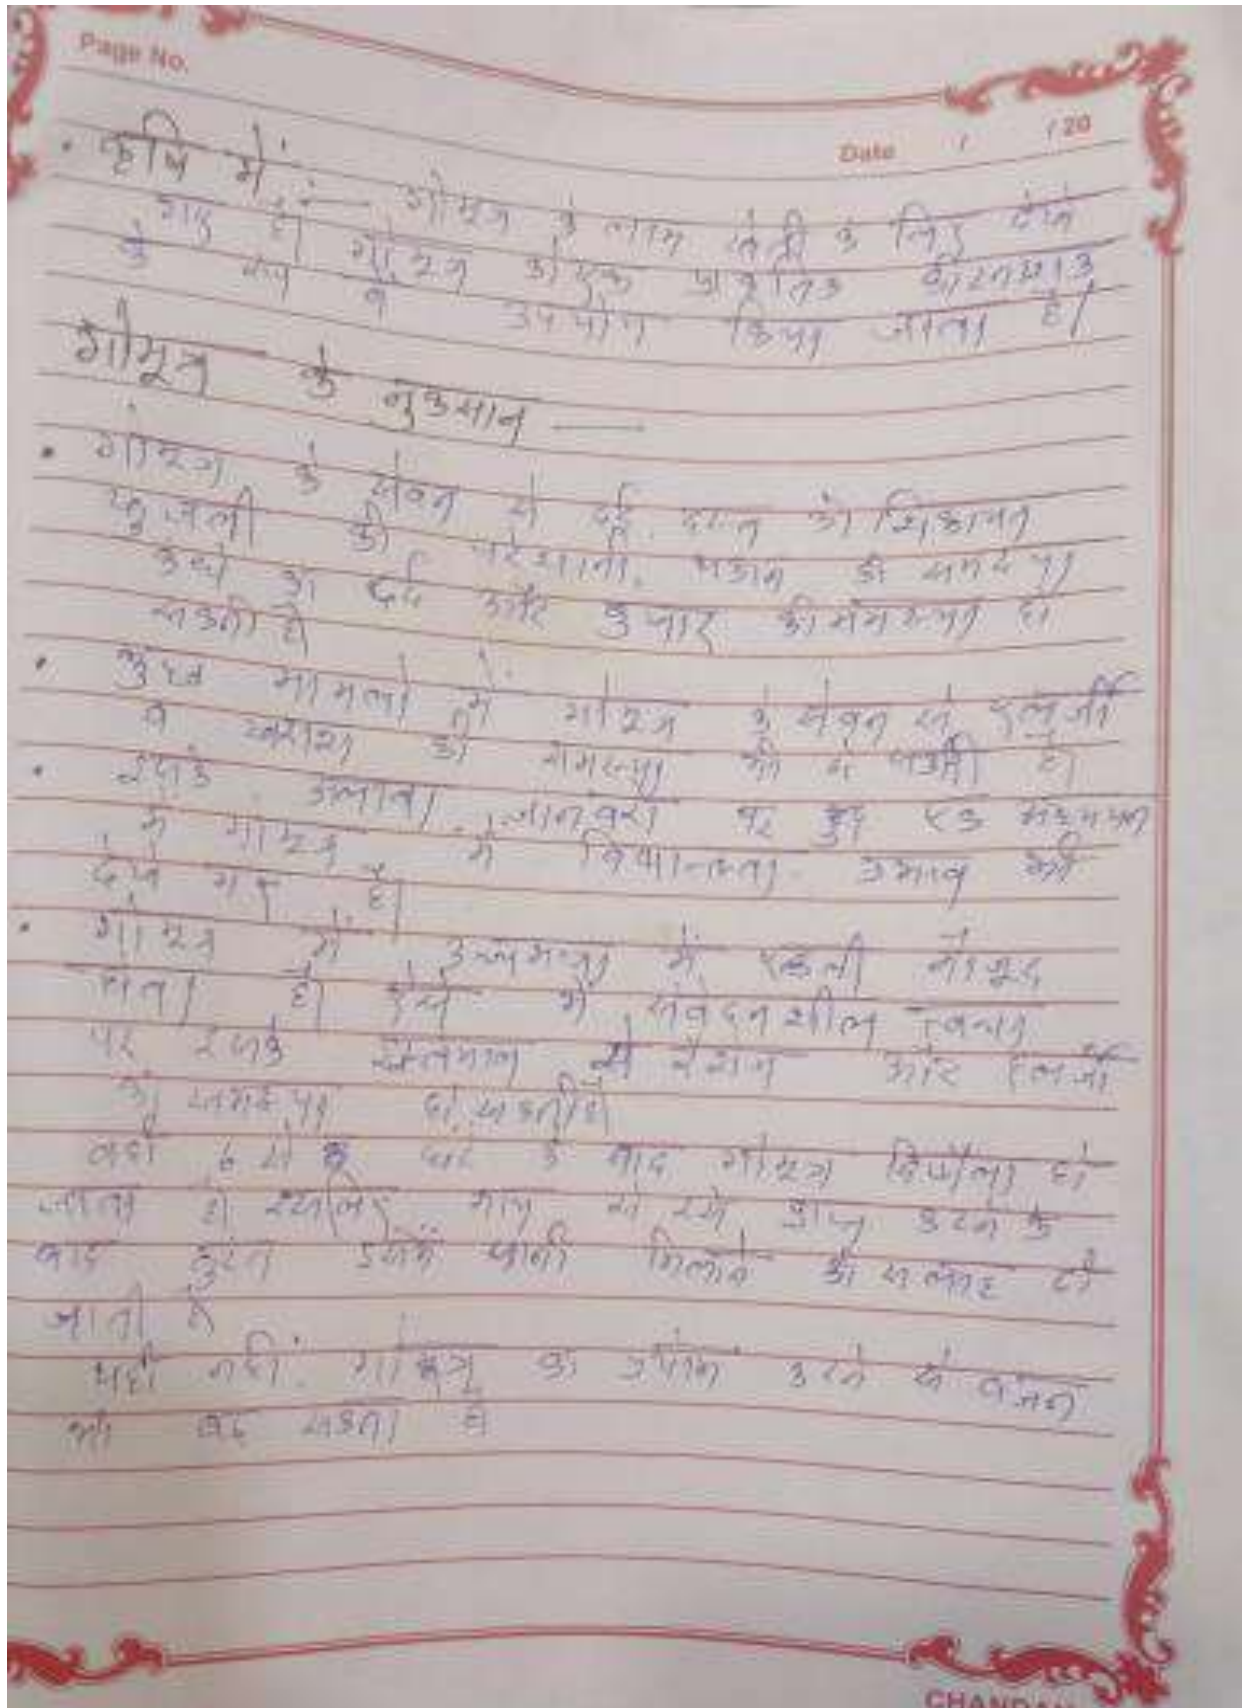 Page No.
Date / / 20
• कृषि में :— गोमूत्र के लाभ खेती के लिए देखे
गए है। गोमूत्र को एक प्राकृतिक कीटनाशक
के रूप में उपयोग किया जाता है।
गोमूत्र के नुकसान —
• गोमूत्र के सेवन से दर्द, दस्त की शिकायत
खुजली की परेशानी, थकान की समस्या
कंधो का दर्द और बुखार की समस्या हो
सकती है
• कुछ मामलो में गोमूत्र के सेवन से एलर्जी
व खराश की समस्या भी है
• इसके अलावा जानवरो पर हुए एक अध्ययन
में गोमूत्र में विषाक्तता प्रभाव भी
देखे गए है।
• गोमूत्र में में मौजूद
होता है। ऐसे में संवेदनशील त्वचा
पर इसके इस्तेमाल से रैशेज और एलर्जी
की समस्या हो सकती है
वही के बाद गोमूत्र विषैला हो
जाता है इसलिए गाय से इसे प्राप्त करने के
बाद तुरंत इसमें पानी मिलाने की सलाह दी
जाती है
यही नहीं, गोमूत्र का उपयोग करने से वजन
भी बढ़ सकता है
CHANDAN